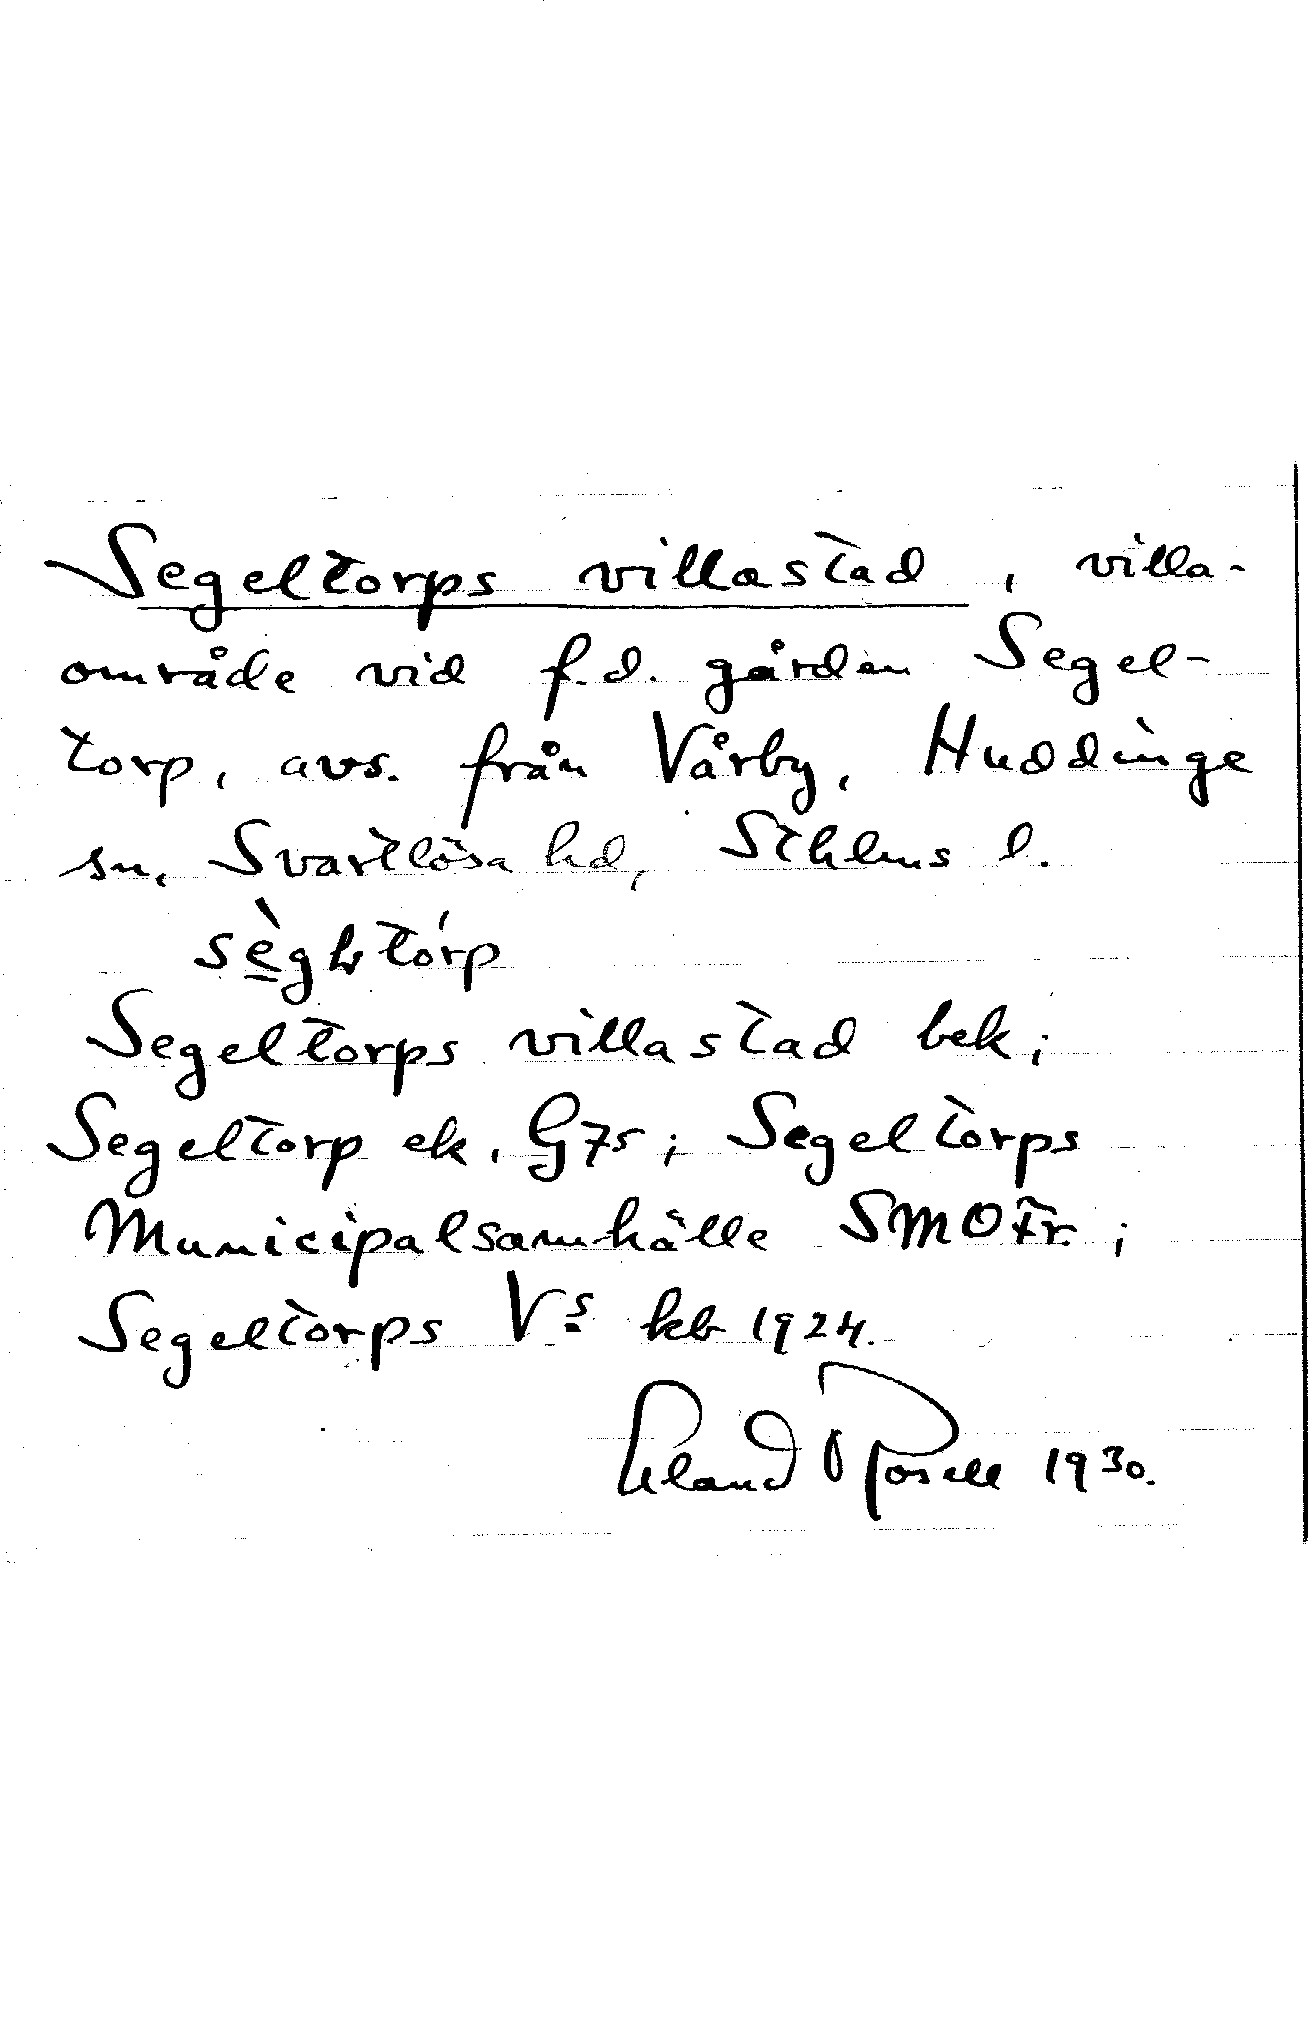 Segeltorps villastad, villa-
område vid f.d. gården Segel-
torp, avs. från Vårby, Huddinge
sn, Svartlösa hd, Sthlms l.
Segeltorps villastad bek;
Segeltorp ek. G75; Segeltorps
Municipalsamhälle SMOFr.;
Segeltorps Vs kb 1924.
Erland Rosell 1930.